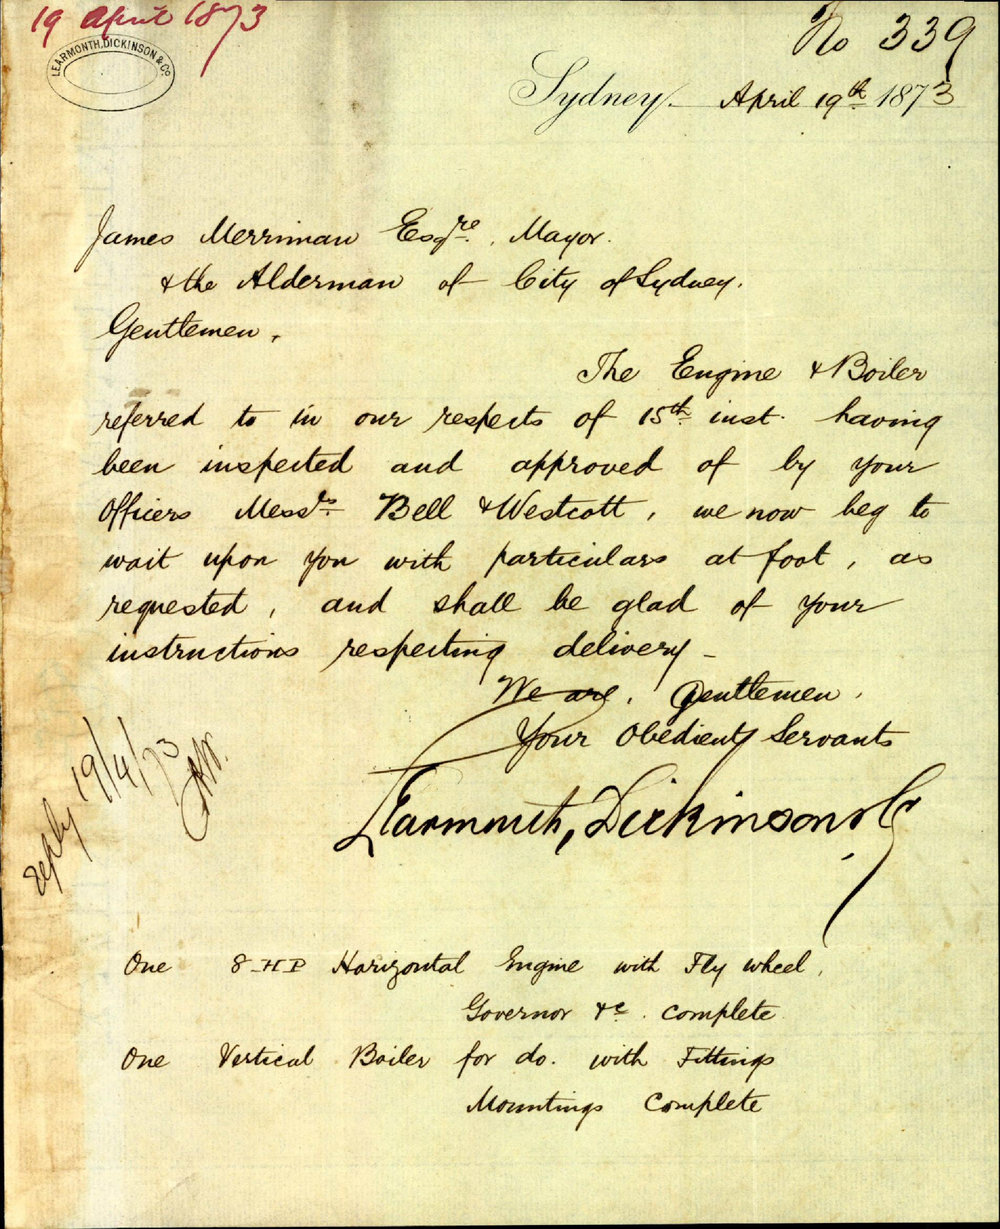 19 April 1873
LEARMONTH, DICKINSON & Co
No 339
Sydney April 19th 1873
James Merriman Esqre, Mayor.
& the Alderman of City of Sydney.
Gentlemen,
The Engine & Boiler
referred to in our respects of 15th inst. having
been inspected and approved of by your
Officers Messrs Bell & Westcott, we now beg to
wait upon you with particulars at foot, as
requested, and shall be glad of your
instructions respecting delivery _
We are, Gentlemen,
Your Obedient Servants
Learmonth, Dickinson & Co
reply 19/4/73
One 8 HP Horizontal Engine with Fly wheel,
Governor &c. complete
One Vertical Boiler for do. with Fittings
Mountings Complete